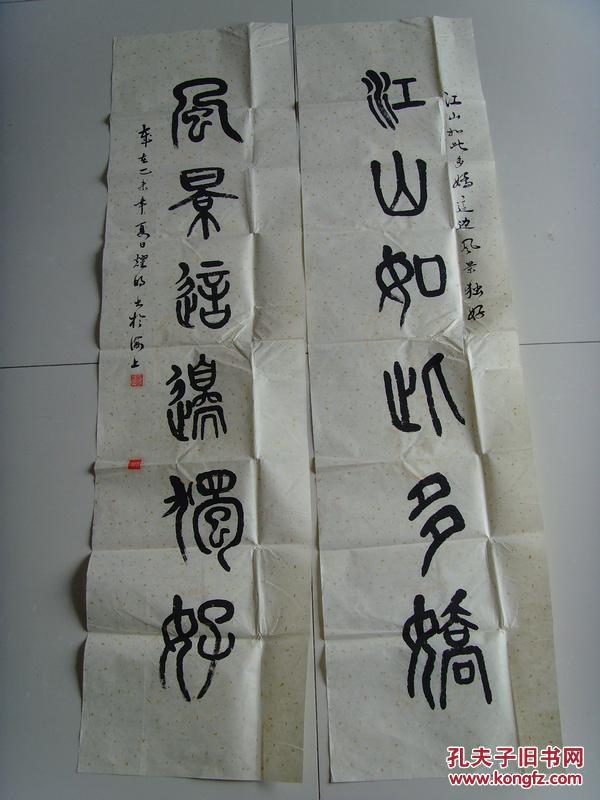 江山如此多嬌
江山如此多娇这边风景独好
風景這邊獨好
岁在乙未年夏日耀明书于海上
孔夫子旧书网
www.kongfz.com